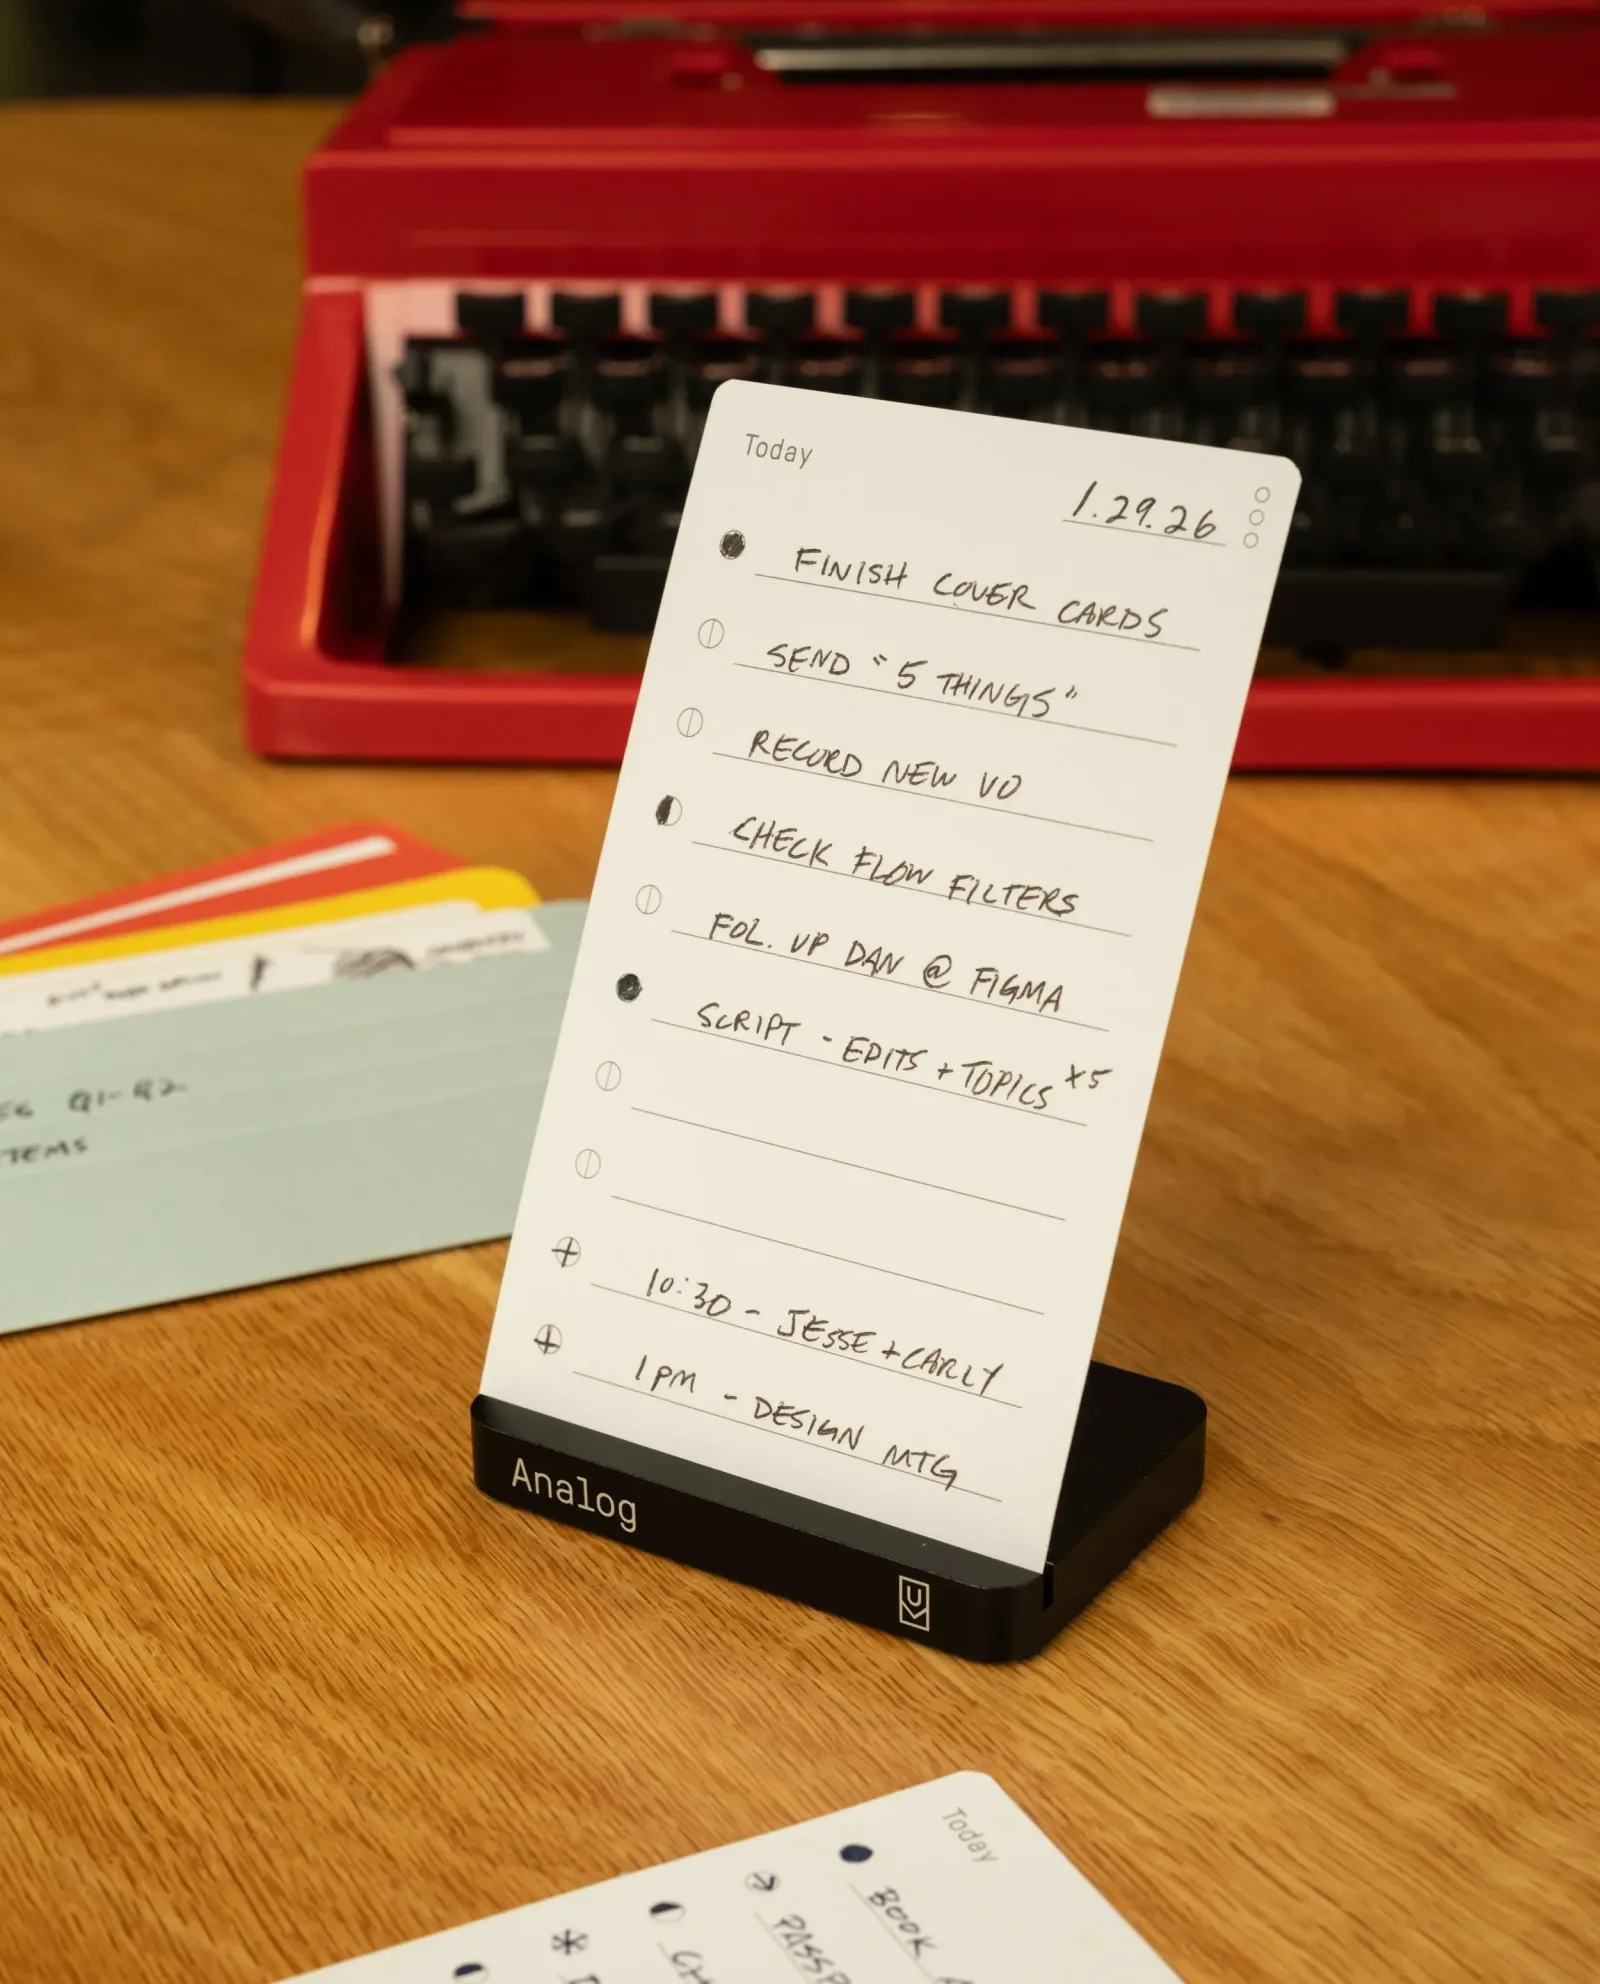 Today
1.29.26
FINISH COVER CARDS
SEND "5 THINGS"
RECORD NEW VO
CHECK FLOW FILTERS
FOL. UP DAN @ FIGMA
SCRIPT - EDITS + TOPICS x5
10:30 - JESSE + CARLY
1PM - DESIGN MTG
Analog
Q1-Q2
Today
BOOK